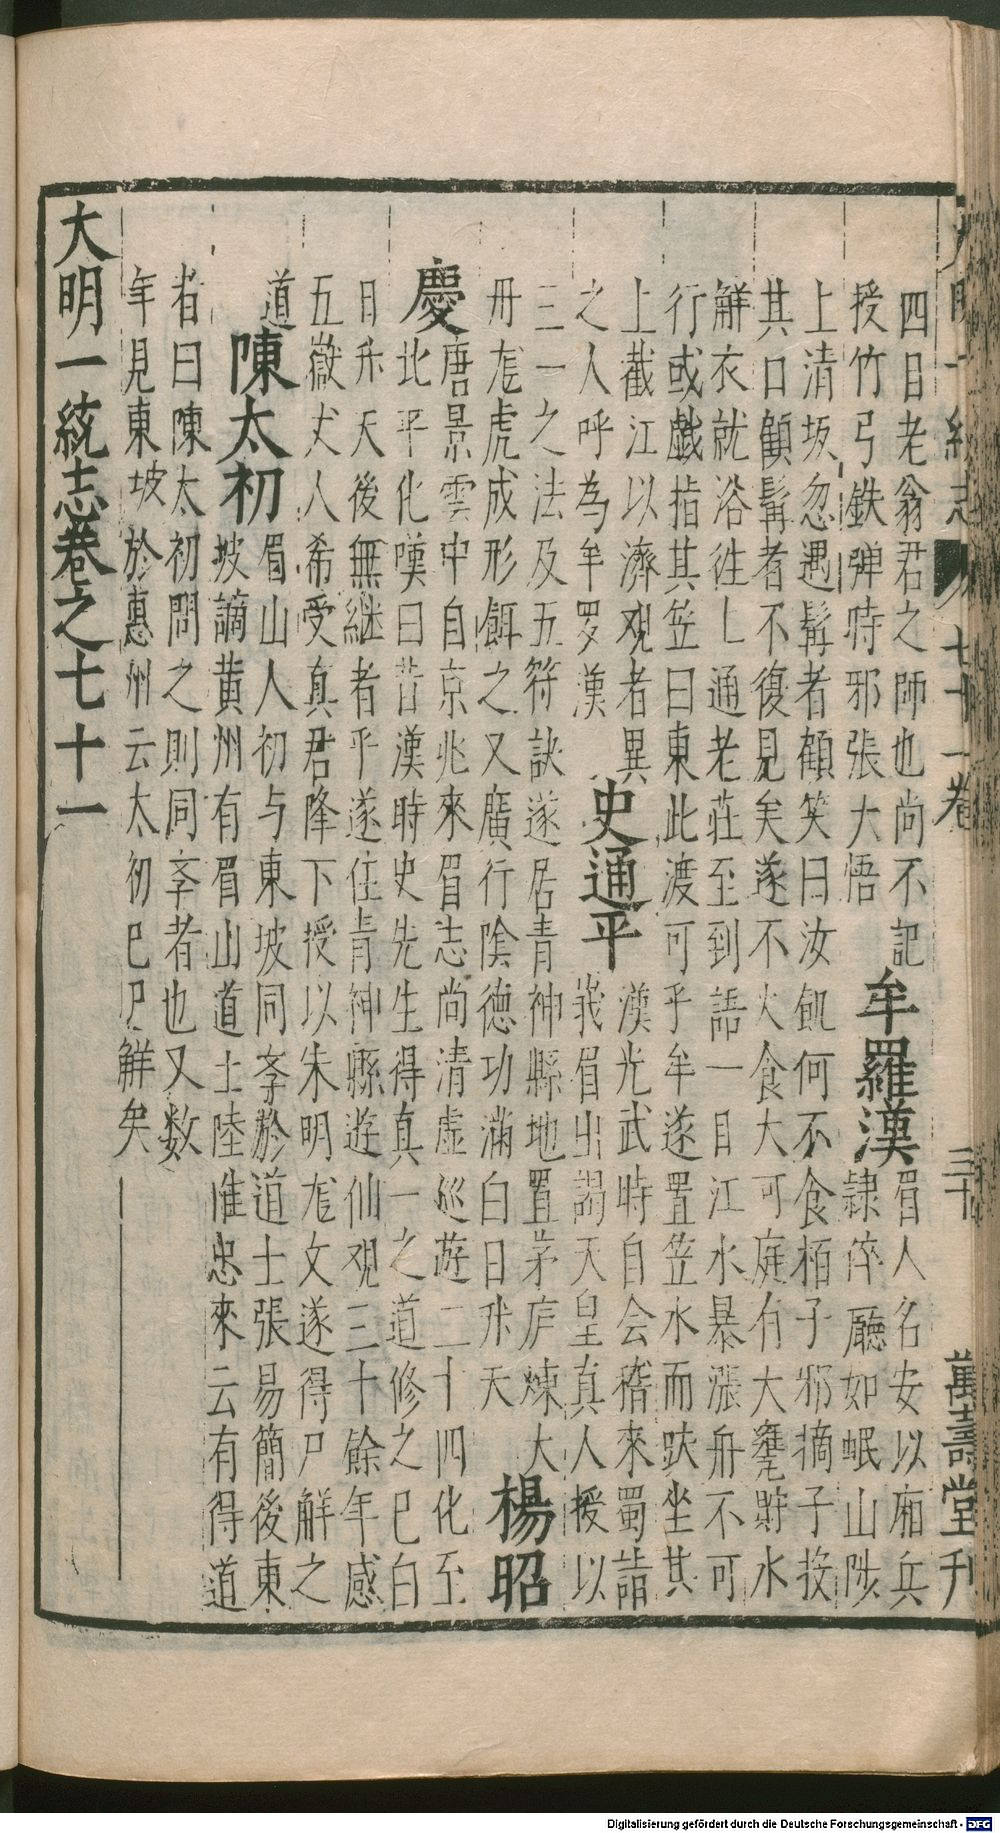 大明一統志 七十一卷 三十 萬壽堂刊
四目老翁君之師也尚不記 牟羅漢 眉人名安以廂兵
授竹弓鉄弾時邪張大悟 隷倅廳如岷山陟
上清坂忽遇髯者顧笑曰汝飢何不食栢子邪摘子投
其口顧髯者不復見矣遂不火食大可庭有大甕貯水
觧衣就浴徃乚通老莊至到語一日江水暴漲舟不可
行或戯指其笠曰東此渡可乎牟遂置笠水而趺坐其
上截江以濟观者異 史通平 漢光武時自会稽來蜀詣
之人呼為牟罗漢 峩眉出謁天皇真人授以
三一之法及五符訣遂居青神縣地置茅庐煉大
丹尨虎成形餌之又廣行陰德功滿白日升天 楊昭
慶 唐景雲中自京兆來眉志尚清虚廵蓰二十四化至
北平化嘆曰昔漢時史先生得真一之道修之已白
日升天後無継者乎遂住青神縣遊仙观三十餘年感
五嶽丈人希受真君降下授以朱明尨文遂得尸觧之
道 陳太初 眉山人初与東坡同斈於道士張易簡後東
坡謫黄州有眉山道士陸惟忠來云有得道
者曰陳太初問之則同斈者也又数
年見東坡於惠州云太初已尸觧矣
大明一統志卷之七十一
Digitalisierung gefördert durch die Deutsche Forschungsgemeinschaft - DFG